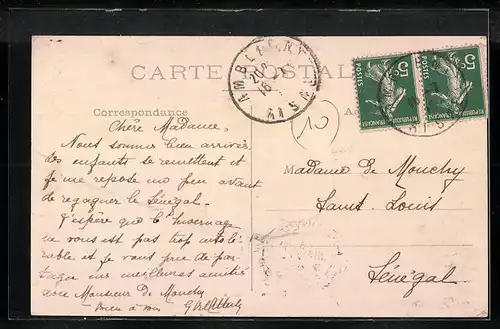 CARTE POSTALE
AMBLENY
AISNE
5c POSTES REPUBLIQUE FRANÇAISE
5c POSTES REPUBLIQUE FRANÇAISE
Correspondance
(10)
Chère Madame,
Nous sommes bien arrivés
les enfants se remettent et
je me repose un peu avant
de regagner le Sénégal.
J'espère que l'hivernage
ne vous est pas trop intolé-
rable et je vous prie de par-
tager mes meilleures amitiés
avec Monsieur de Mouchy
Bien à vous
Madame de Mouchy
Saint Louis
Sénégal